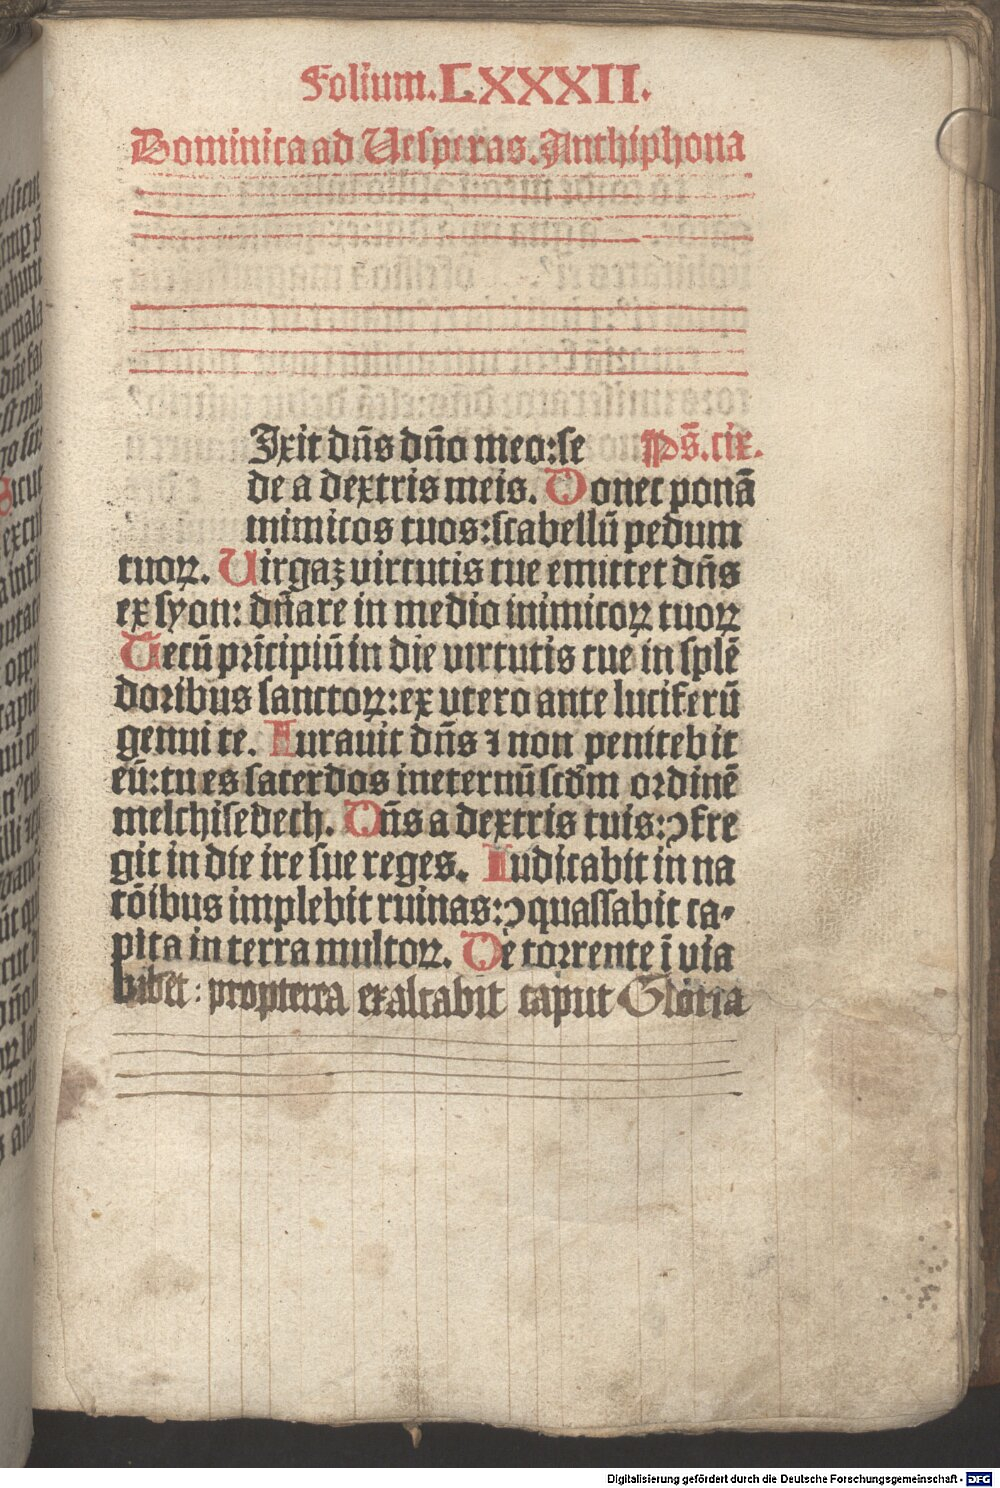 Folium.LXXXII.
Dominica ad Vesperas.Anthiphona
Ixit dn̄s dn̄o meo:se Ps̄.cix.
de a dextris meis. Donec ponā
inimicos tuos:scabellū pedum
tuoꝝ. Uirgaꝫ virtutis tue emittet dn̄s
ex syon: dn̄are in medio inimicoꝝ tuoꝝ
Tecū prīcipiū in die virtutis tue in splē
doribus sanctoꝝ:ex vtero ante luciferū
genui te. Iurauit dn̄s ⁊ non penitebit
eū:tu es sacerdos ineternū scd̄m ordinē
melchisedech. Dn̄s a dextris tuis:ↄfre
git in die ire sue reges. Iudicabit in na
tōibus implebit ruinas:ↄquassabit ca-
pita in terra multoꝝ. De torrente ī via
bibet: propterea exaltabit caput Gloria
Digitalisierung gefördert durch die Deutsche Forschungsgemeinschaft - DFG